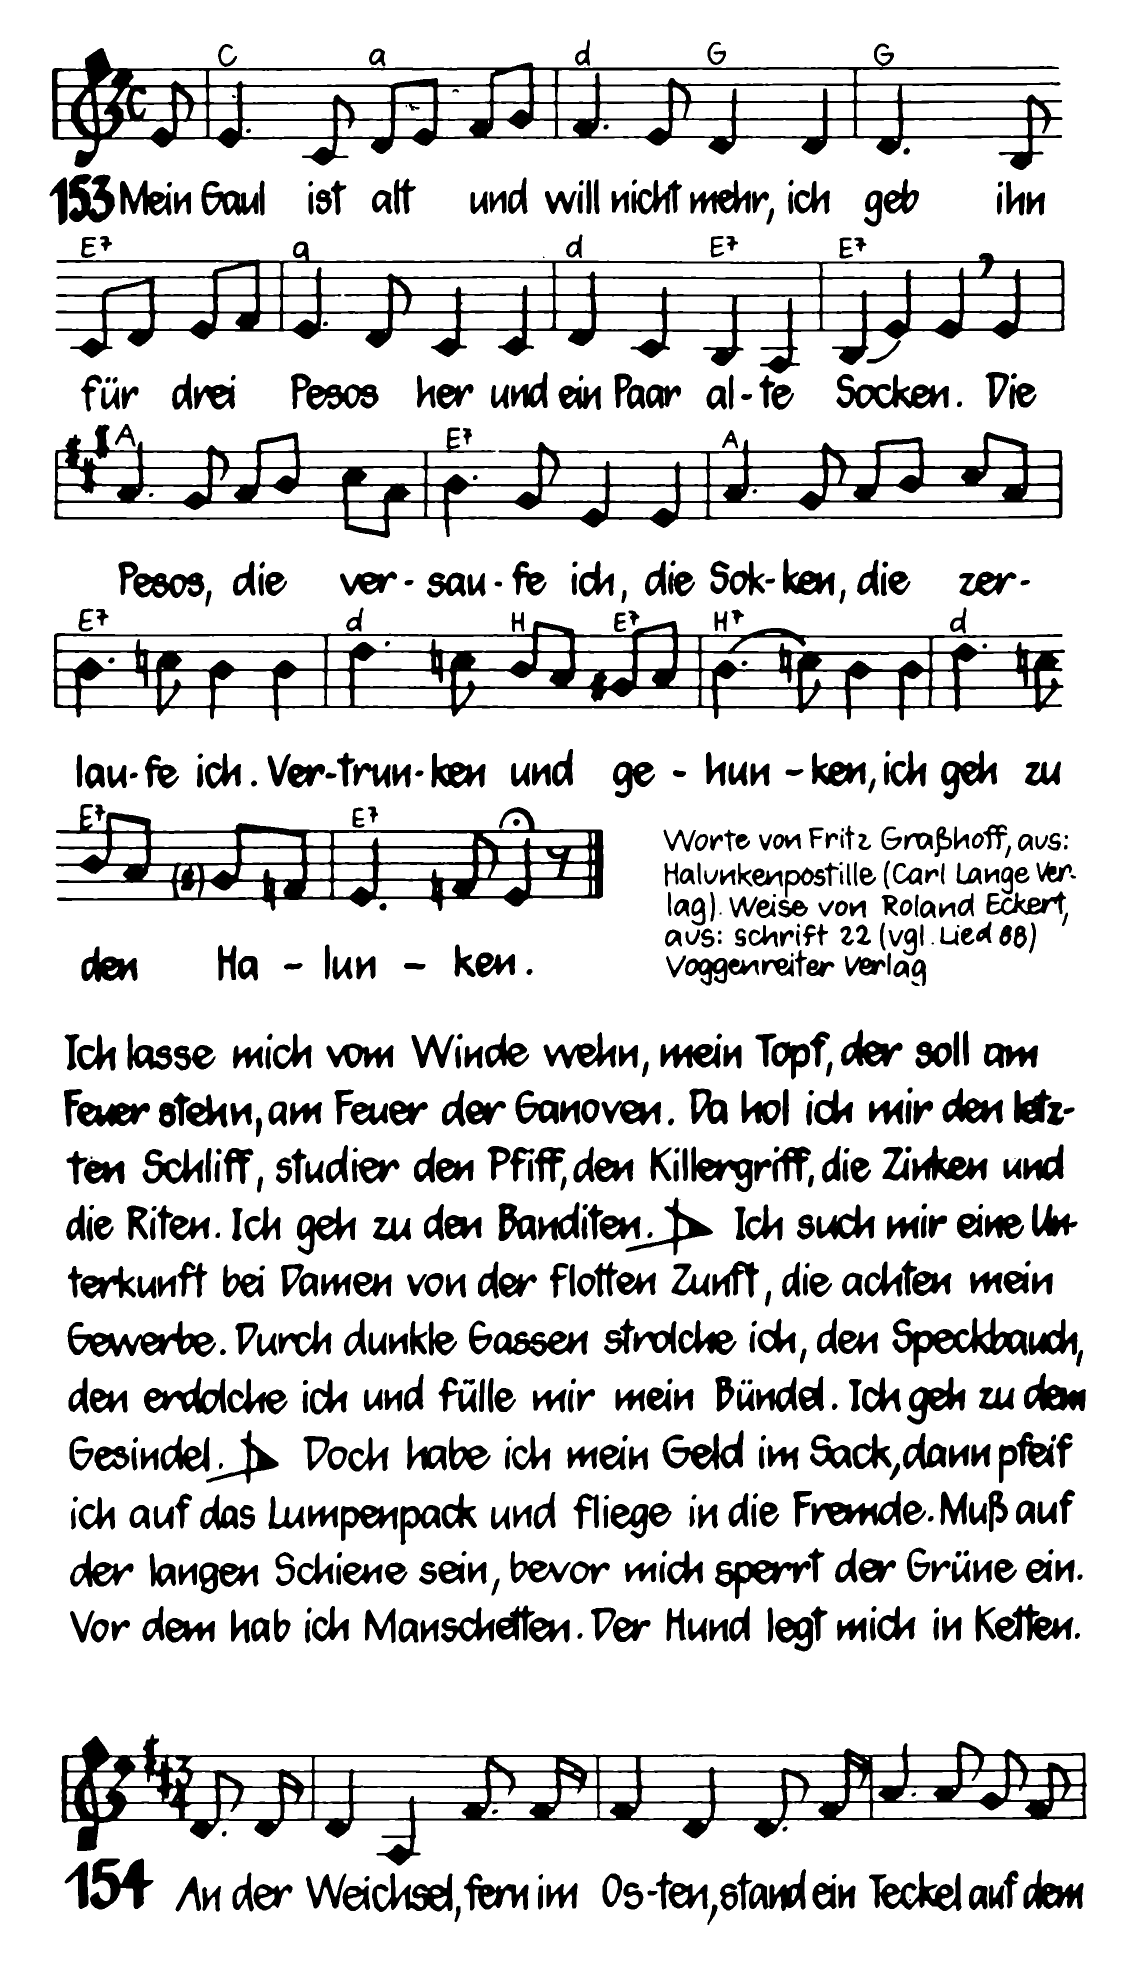 C a d G G
153 Mein Gaul ist alt und will nicht mehr, ich geb ihn
E7 a d E7 E7
für drei Pesos her und ein Paar al-te Socken. Die
A E7 A
Pesos, die ver-sau-fe ich, die Sok-ken, die zer-
E7 d H E7 H7 d
lau-fe ich. Ver-trun-ken und ge-hun-ken, ich geh zu
E7 E7
den Ha-lun-ken.
Worte von Fritz Graßhoff, aus:
Halunkenpostille (Carl Lange Ver-
lag). Weise von Roland Eckert,
aus: schrift 22 (vgl. Lied 88)
Voggenreiter Verlag
Ich lasse mich vom Winde wehn, mein Topf, der soll am
Feuer stehn, am Feuer der Ganoven. Da hol ich mir den letz-
ten Schliff, studier den Pfiff, den Killergriff, die Zinken und
die Riten. Ich geh zu den Banditen. Ich such mir eine Un-
terkunft bei Damen von der flotten Zunft, die achten mein
Gewerbe. Durch dunkle Gassen strolche ich, den Speckbauch,
den erdolche ich und fülle mir mein Bündel. Ich geh zu dem
Gesindel. Doch habe ich mein Geld im Sack, dann pfeif
ich auf das Lumpenpack und fliege in die Fremde. Muß auf
der langen Schiene sein, bevor mich sperrt der Grüne ein.
Vor dem hab ich Manschetten. Der Hund legt mich in Ketten.
3/4
154 An der Weichsel, fern im Os-ten, stand ein Teckel auf dem